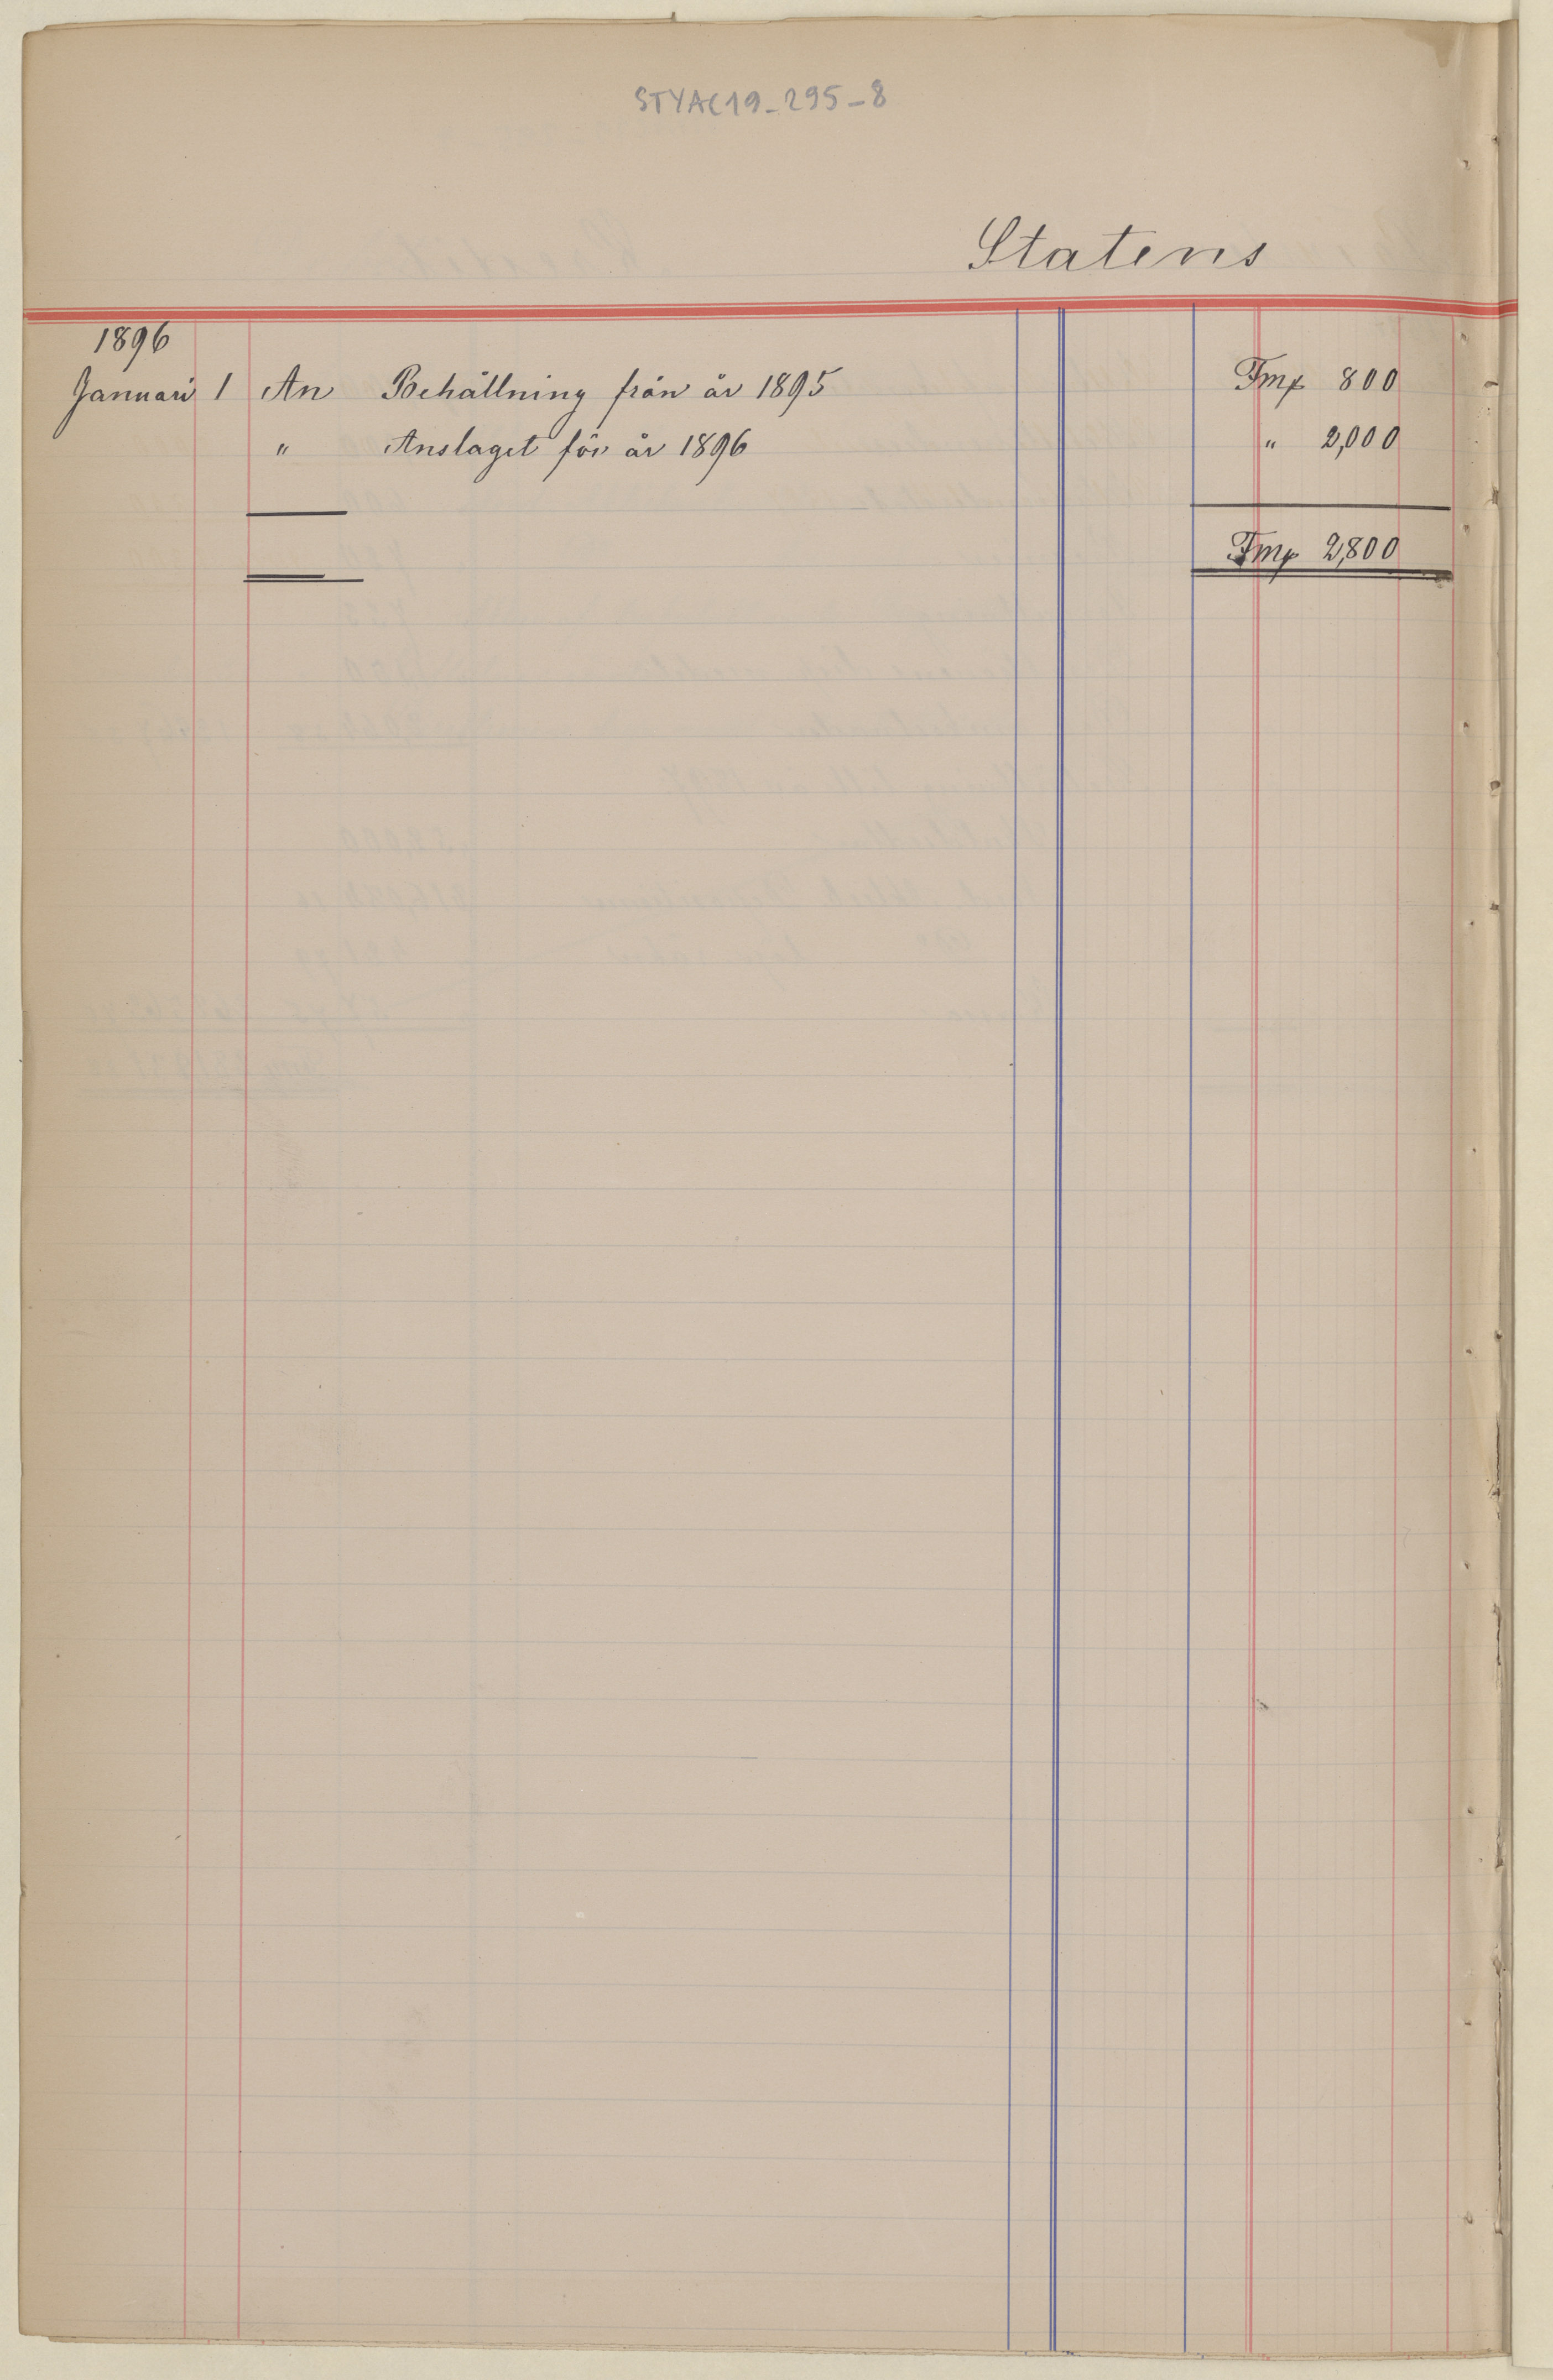 STYAC19_295-8
Statens
1896
Januari 1 An Behållning från år 1895 Fmk 800
" Anslaget för år 1896 " 2,000
Fmk 2,800